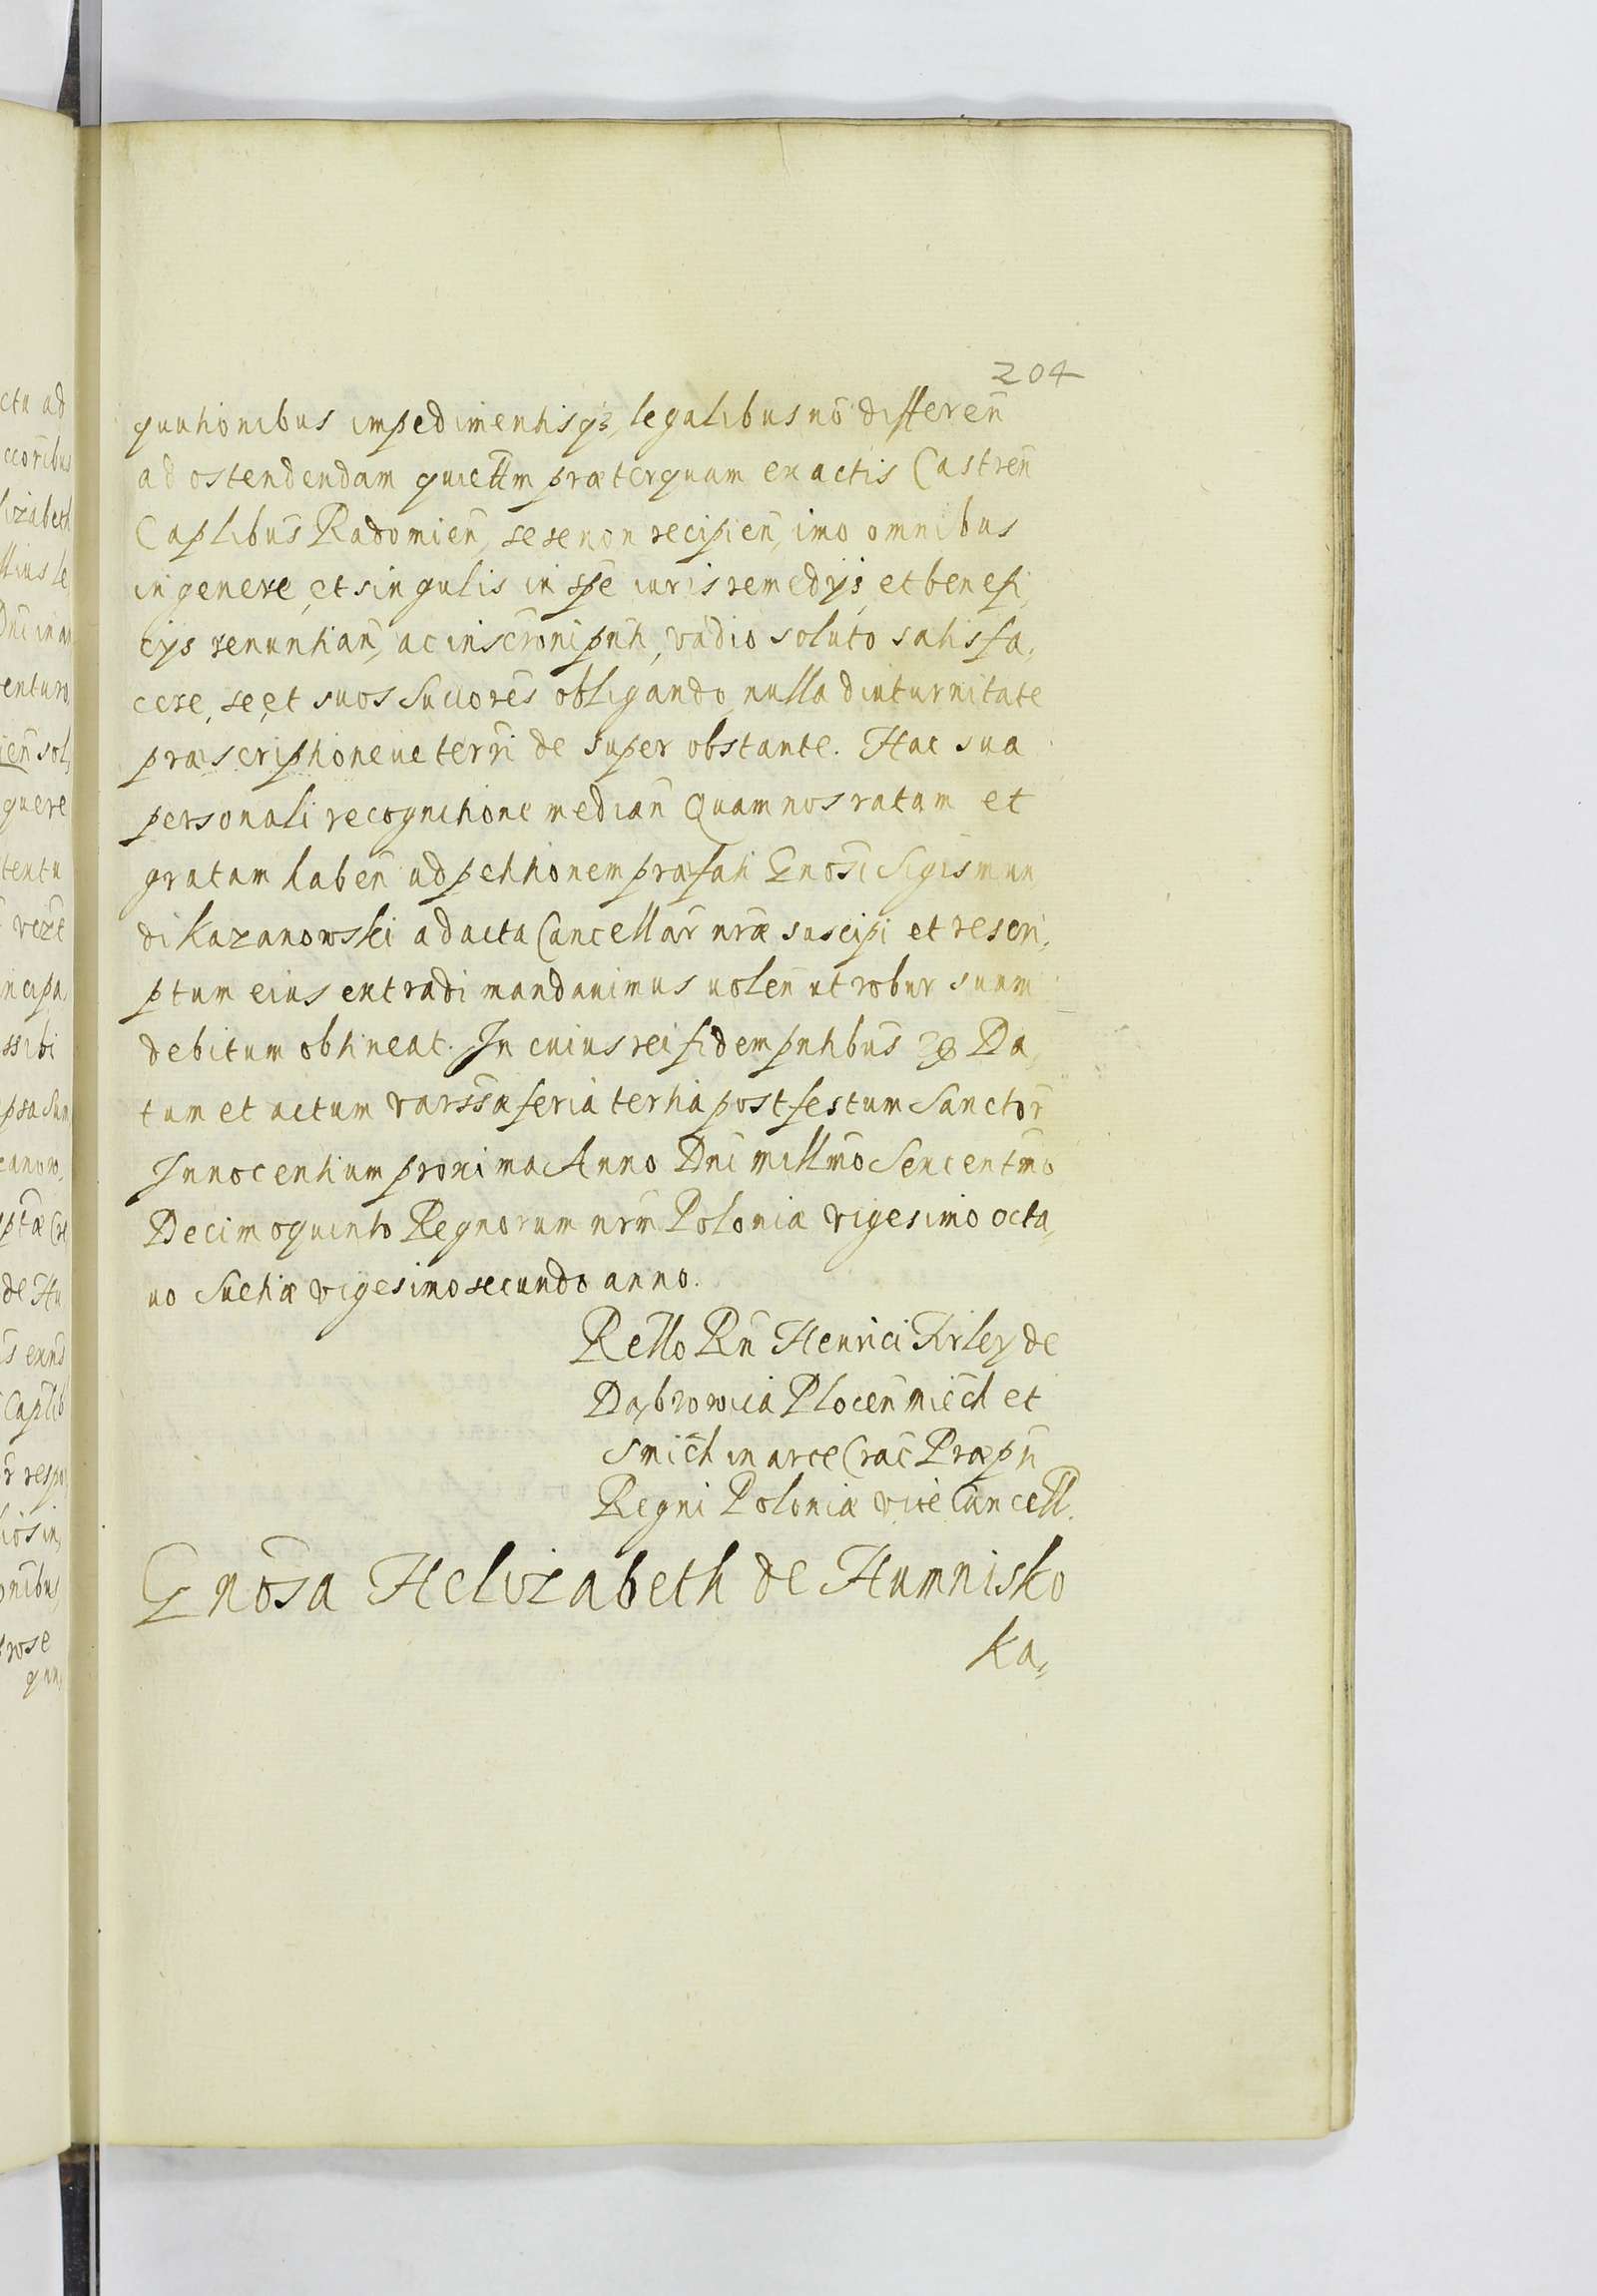 204
quutionibus impedimentisqz, legalibus nō differēn
ad ostendendam quiettm præterquam ex actis Castrēn
Caplibūs Radomiēn, se se non recipiēn, imo omnibus
in genere, et singulis in spē iuris remedijs, et benefi,
cijs renuntiān, ac inscrōni pn̄ti, vadio soluto satisfa,
cere, se, et suos Succōrēs obligando nulla diuturnitate
præscriptioneue terrī de super obstante. Hac sua
personali recognitione mediān Quam nos ratam et
gratam habēn ad petitionem præfati Gnōsi Sigismun
di Kazanowski ad acta Cancellār nr̄æ suscipi et rescri,
ptum eius extradi mandauimus uolēn ut robur suum
debitum obtineat. In cuius rei fidem pn̄tibūs Da,
tum et actum varssa feria tertia post festum Sanctōr
Innocentium proxima Anno Dnī millmō Sexcentmō
Decimoquinto Regnorum nrm̄ Poloniæ vigesimo octa,
uo Suetiæ vigesimo secundo anno.
Rello Rn̄ Henrici Firley de
Dąbrowica Plocēn Miēch et
S Mich in arce Crac̄ Præpn̄
Regni Poloniæ vice Cancell.
Gnōsa Helizabeth de Humnisko
Ka,